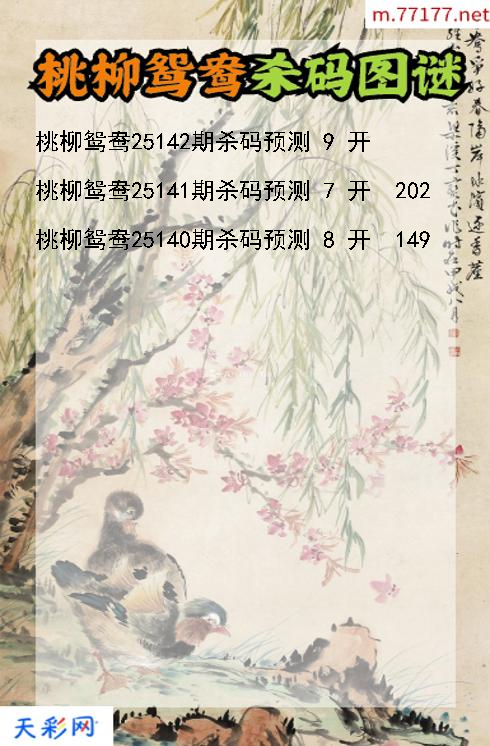 m.77177.net
桃柳鸳鸯杀码图谜
桃柳鸳鸯25142期杀码预测 9 开
桃柳鸳鸯25141期杀码预测 7 开 202
桃柳鸳鸯25140期杀码预测 8 开 149
天彩网